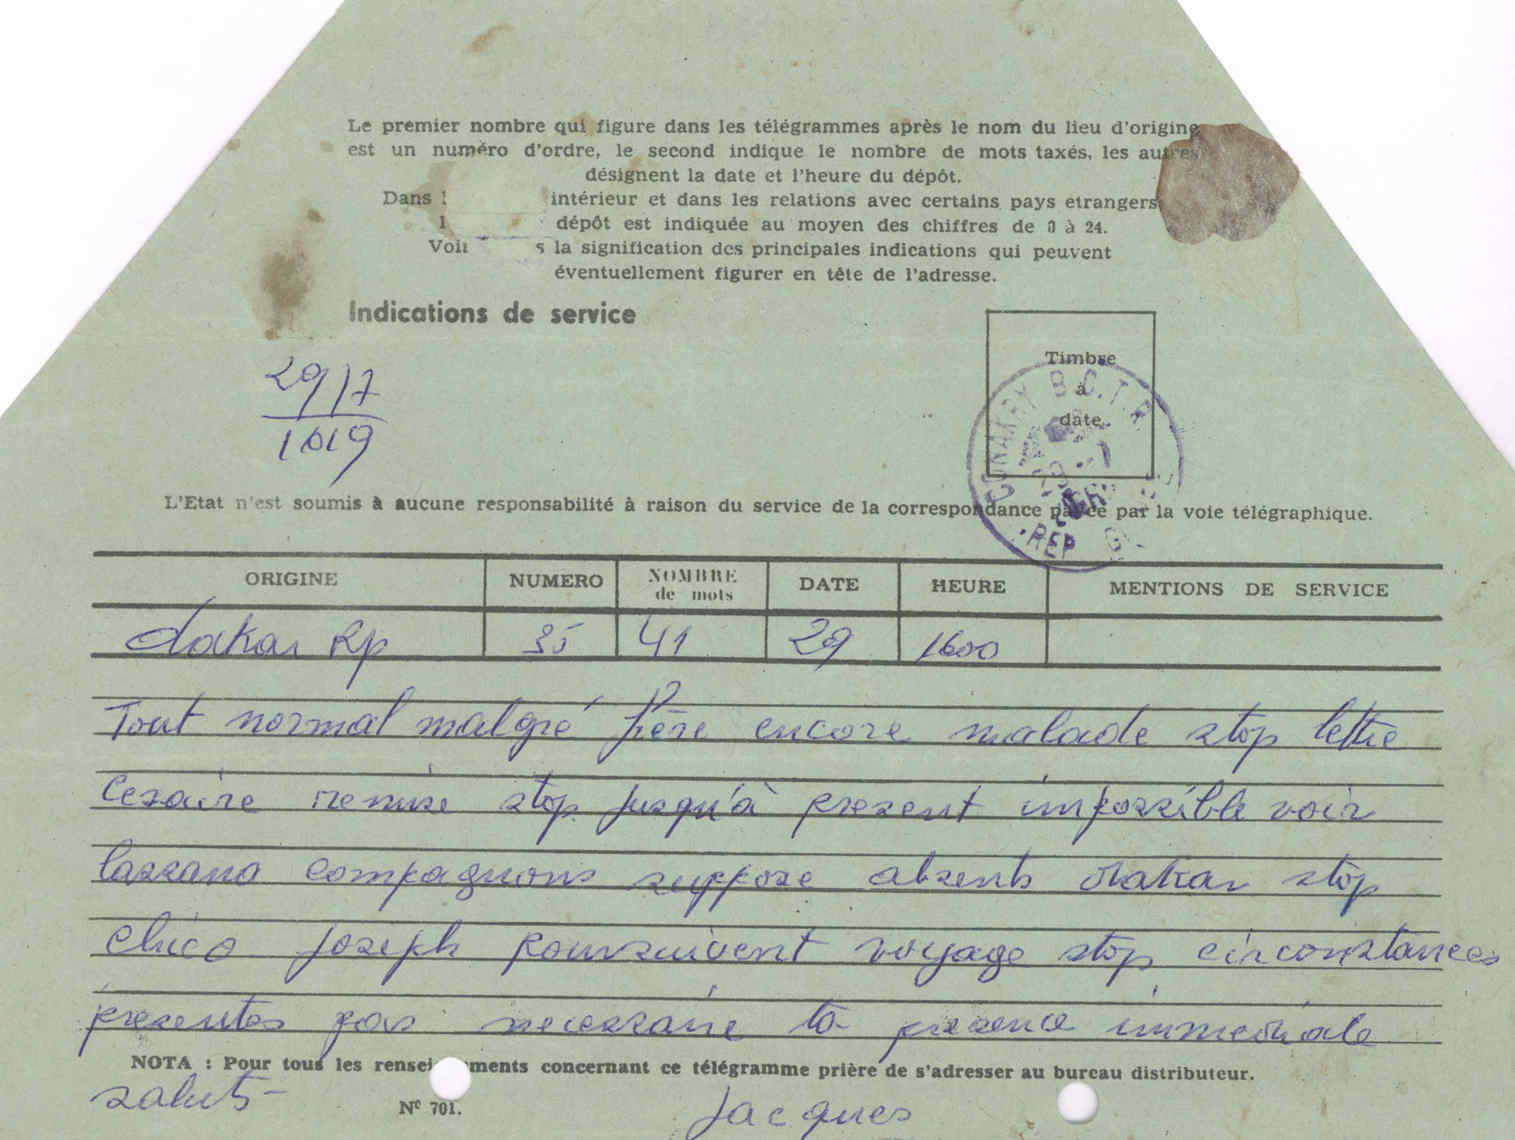 Le premier nombre qui figure dans les télégrammes après le nom du lieu d'origine
est un numéro d'ordre, le second indique le nombre de mots taxés, les autres
désignent la date et l'heure du dépôt.
Dans intérieur et dans les relations avec certains pays etrangers
dépôt est indiquée au moyen des chiffres de 0 à 24.
Voir la signification des principales indications qui peuvent
éventuellement figurer en tête de l'adresse.
Indications de service
29/7
1019
Timbre
à
date
CONAKRY B.C.T.R.
REP G
L'Etat n'est soumis à aucune responsabilité à raison du service de la correspondance privée par la voie télégraphique.
ORIGINE NUMERO NOMBRE de mots DATE HEURE MENTIONS DE SERVICE
dakar Rp 35 41 29 1600
Tout normal malgré père encore malade stop lettre
Cesaire remise stop jusqu'à present impossible voir
lassana compagnons suppose absents dakar stop
chico joseph poursuivent voyage stop circonstances
presentes pas necessaire ta presence immediate
NOTA : Pour tous les rensei ments concernant ce télégramme prière de s'adresser au bureau distributeur.
saluts-
N° 701.
Jacques